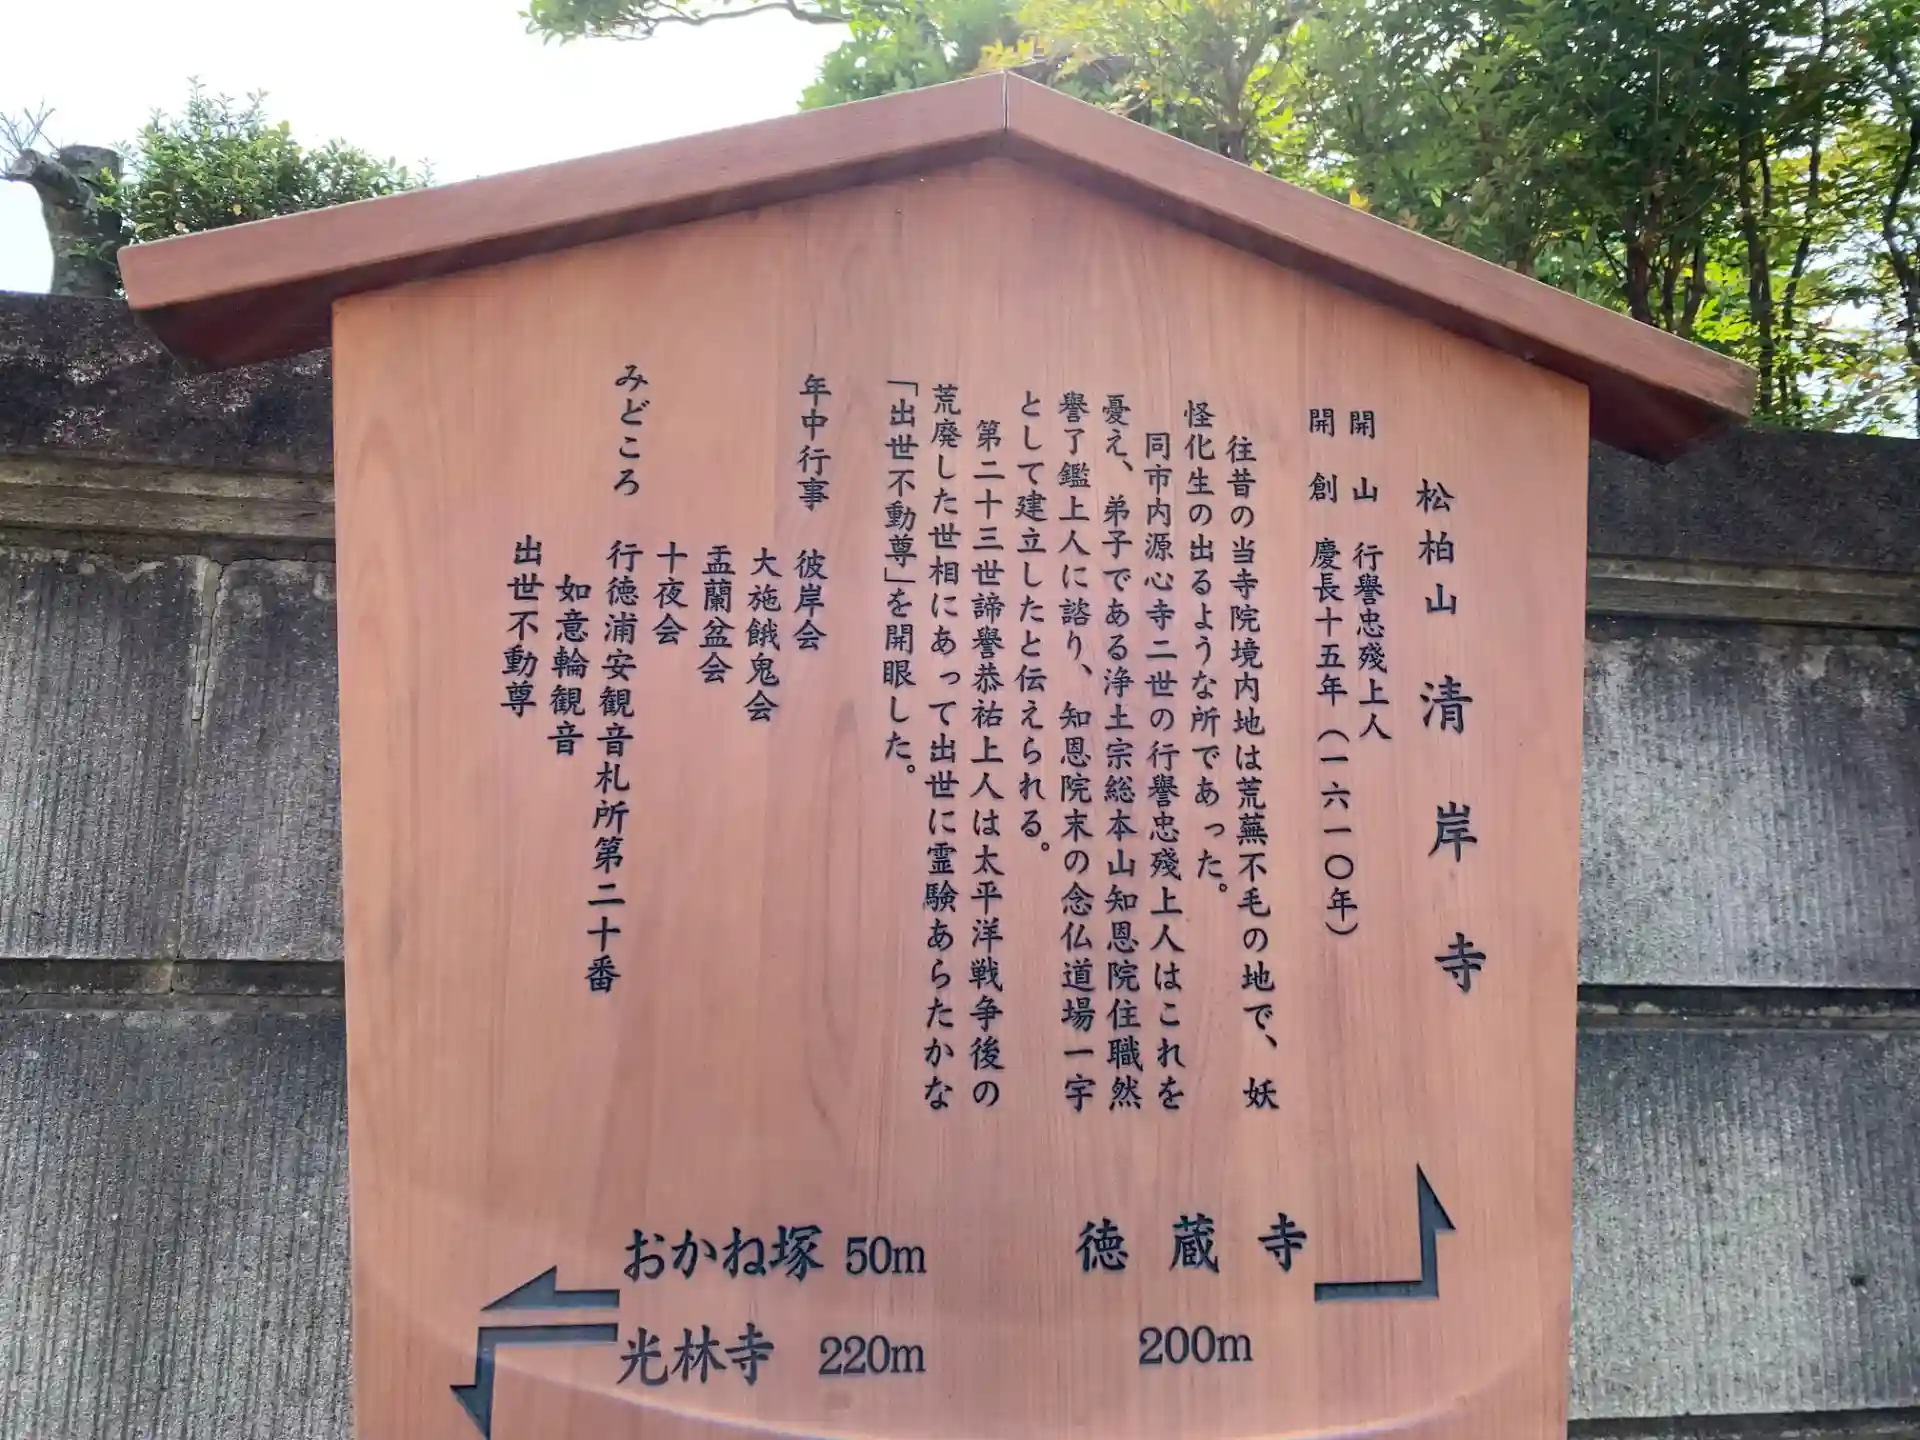 松柏山 清岸寺
開山 行譽忠殘上人
開創 慶長十五年(一六一〇年)
往昔の当寺院境内地は荒蕪不毛の地で、妖
怪化生の出るような所であった。
同市内源心寺二世の行譽忠殘上人はこれを
憂え、弟子である浄土宗総本山知恩院住職然
譽了鑑上人に諮り、知恩院末の念仏道場一宇
として建立したと伝えられる。
第二十三世諦譽恭祐上人は太平洋戦争後の
荒廃した世相にあって出世に霊験あらたかな
「出世不動尊」を開眼した。
年中行事 彼岸会
大施餓鬼会
盂蘭盆会
十夜会
みどころ 行徳浦安観音札所第二十番
如意輪観音
出世不動尊
徳蔵寺
200m
おかね塚 50m
光林寺 220m